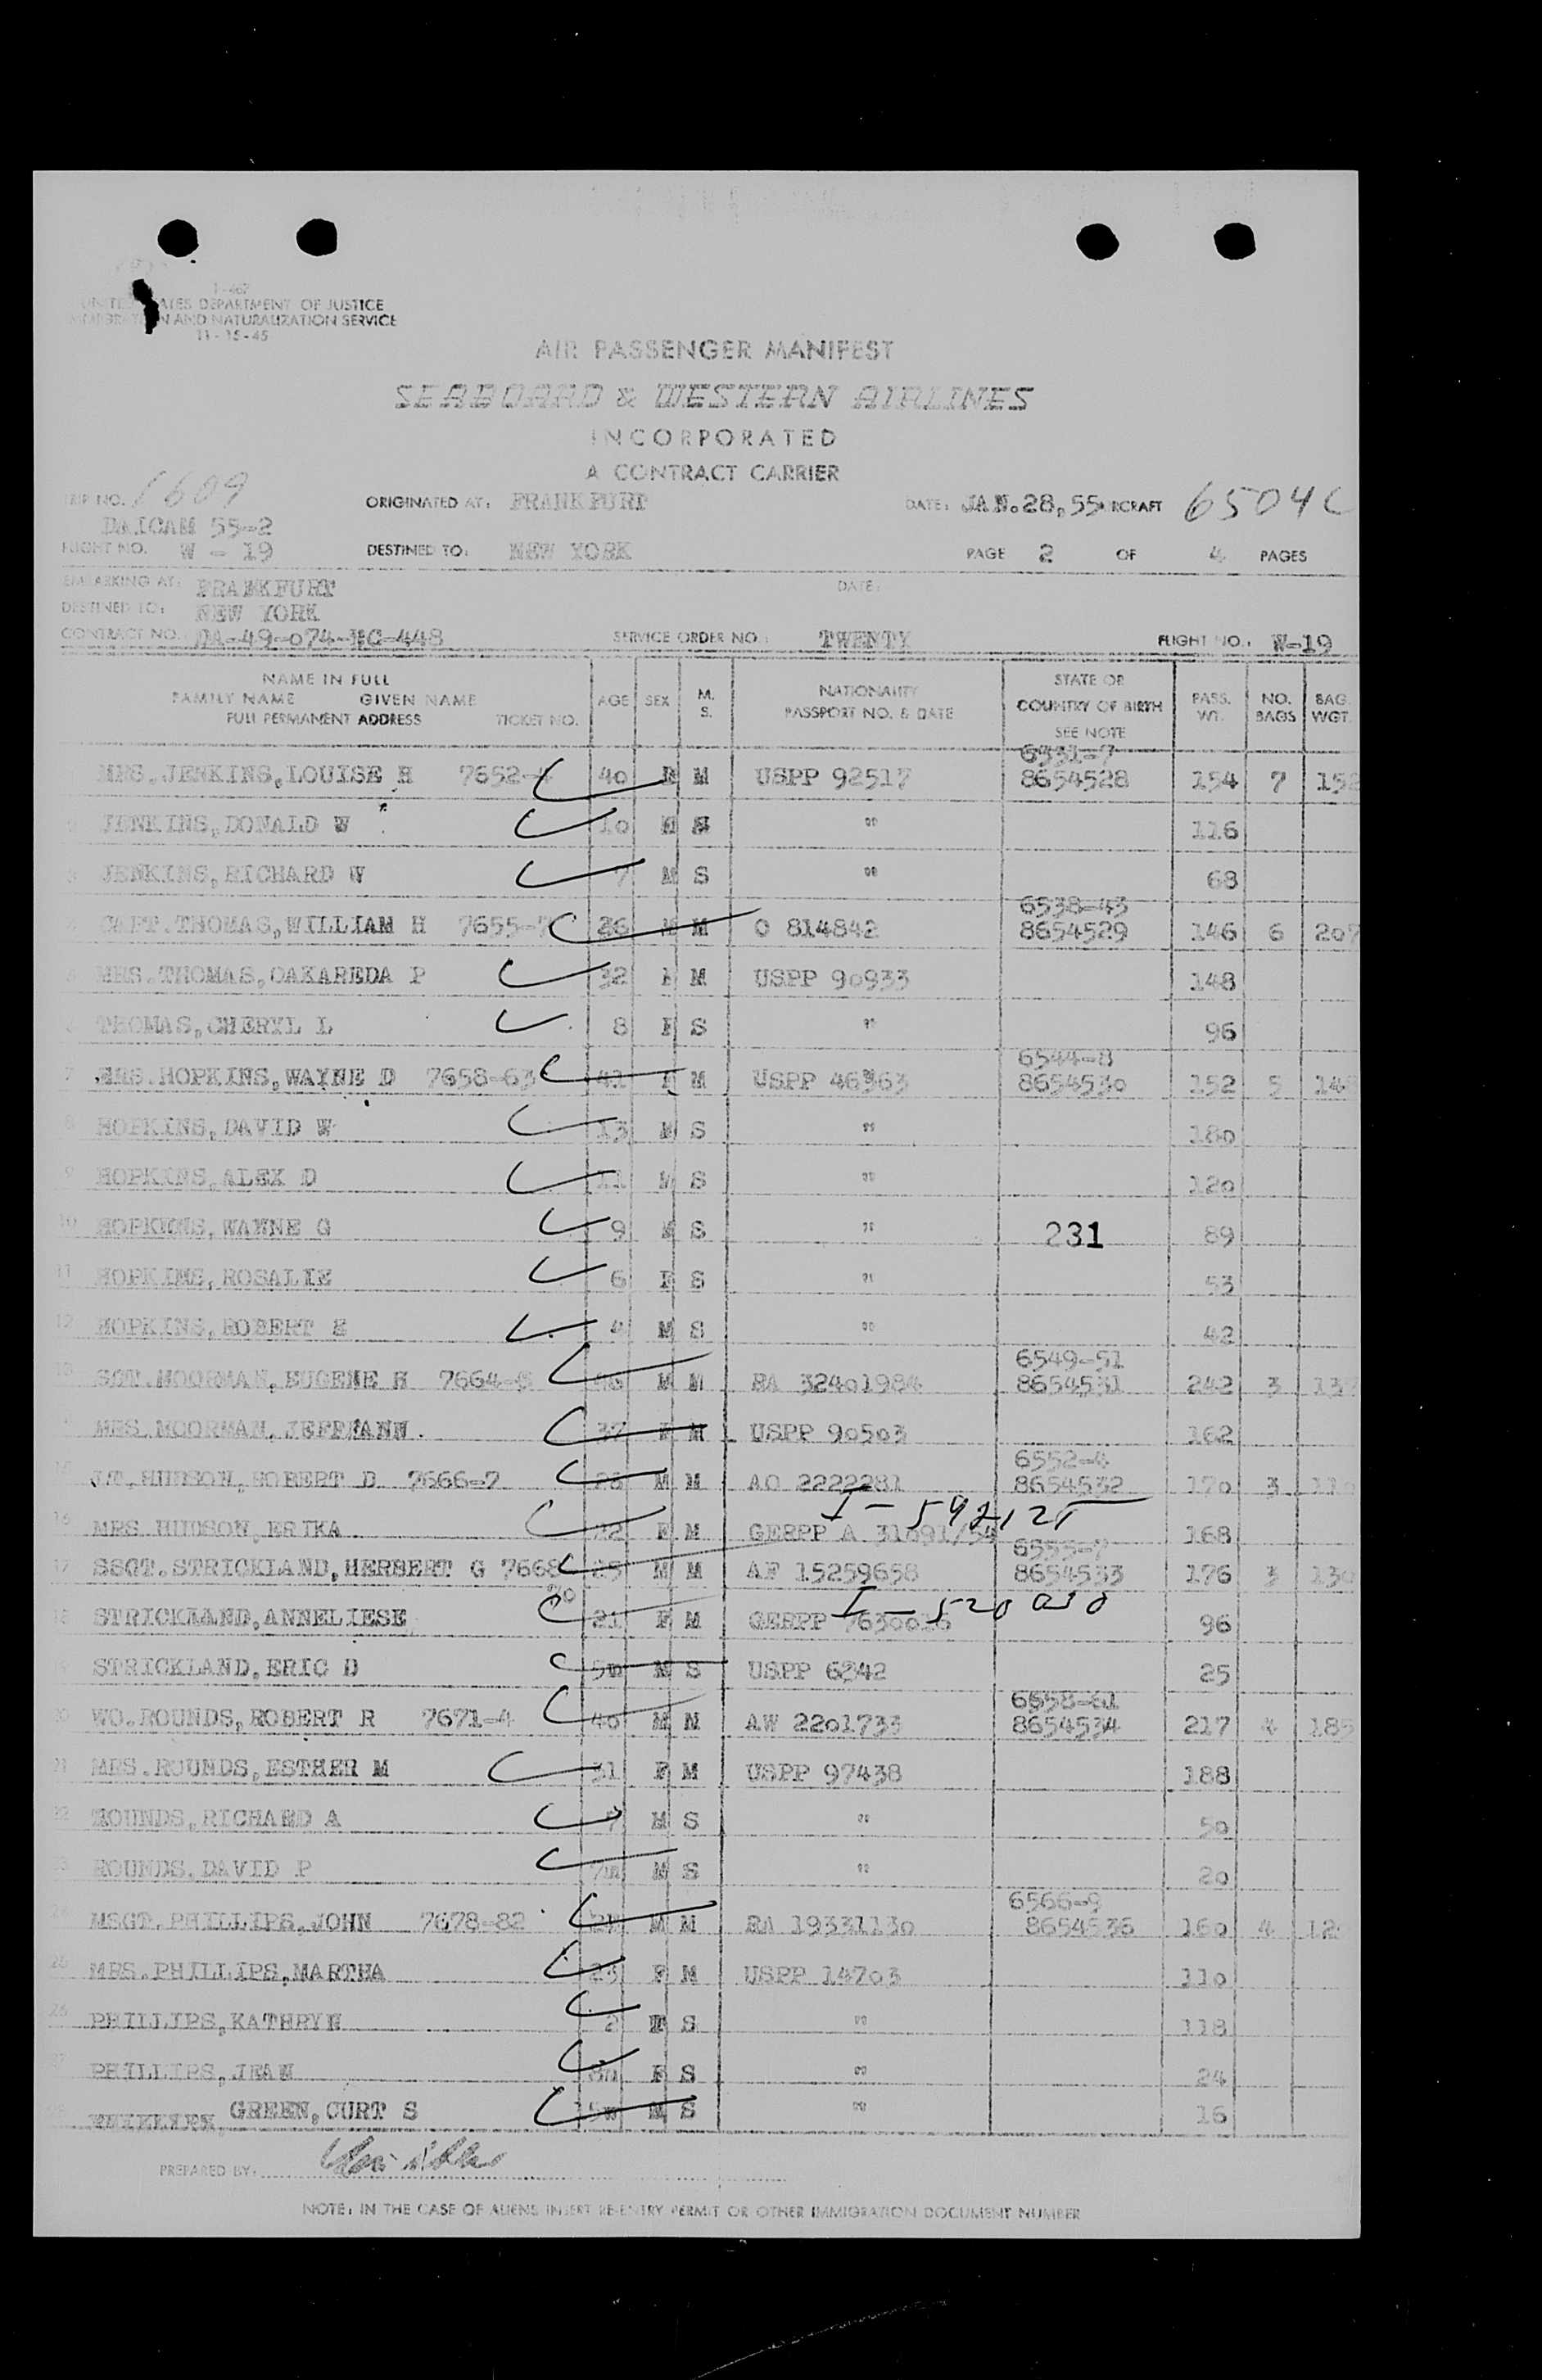 I-467
UNITED STATES DEPARTMENT OF JUSTICE
IMMIGRATION AND NATURALIZATION SERVICE
11-15-45
AIR PASSENGER MANIFEST
SEABOARD & WESTERN AIRLINES
INCORPORATED
A CONTRACT CARRIER
TRIP NO. 1609 ORIGINATED AT: FRANKFURT DATE: JAN.28,55 AIRCRAFT 6504C
DAICAM 55-2
FLIGHT NO. W - 19 DESTINED TO: NEW YORK PAGE 2 OF 4 PAGES
EMBARKING AT: FRANKFURT DATE:
DESTINED TO: NEW YORK
CONTRACT NO. DA-49-074-MC-448 SERVICE ORDER NO: TWENTY FLIGHT NO: W-19
NAME IN FULL
FAMILY NAME GIVEN NAME
FULL PERMANENT ADDRESS TICKET NO. AGE SEX M. S. NATIONALITY PASSPORT NO. & DATE STATE OR COUNTRY OF BIRTH SEE NOTE PASS. WT. NO. BAGS BAG. WGT.
6531-7
1 MRS.JENKINS,LOUISE H 7652-4 40 F M USPP 92517 8654528 154 7 152
2 JENKINS,DONALD W 10 M S " 116
3 JENKINS,RICHARD W 7 M S " 68
6538-43
4 CAPT.THOMAS,WILLIAM H 7655-7 36 M M O 814842 8654529 146 6 207
5 MRS.THOMAS,OAKAREDA P 32 F M USPP 90933 148
6 THOMAS,CHERYL L 8 F S " 96
6544-8
7 MRS.HOPKINS,WAYNE D 7658-63 41 F M USPP 46363 8654530 152 5 148
8 HOPKINS,DAVID W 13 M S " 180
9 HOPKINS,ALEX D 11 M S " 120
10 HOPKINS,WAYNE G 9 M S " 231 89
11 HOPKINS,ROSALIE 6 F S " 53
12 HOPKINS,ROBERT E 4 M S " 42
6549-51
13 SGT.MOORMAN,EUGENE H 7664-5 M M RA 32401984 8654531 242 3 137
14 MRS.MOORMAN,JEFFMANN. 37 F M USPP 90503 162
6552-4
15 LT.HUDSON,ROBERT D 7666-7 M M AO 2222281 8654532 170 3 110
I-592125
16 MRS HUDSON,ERIKA 22 F M GERPP A 31091/54 168
6555-7
17 SSGT.STRICKLAND,HERBERT G 7668 25 M M AF 15259658 8654533 176 3 130
70
I-520030
18 STRICKLAND,ANNELIESE 21 F M GERPP 96
19 STRICKLAND,ERIC D 5m M S USPP 6342 25
6558-61
20 WO.ROUNDS,ROBERT R 7671-4 40 M M AW 2201733 8654534 217 4 185
21 MRS.ROUNDS,ESTHER M 31 F M USPP 97438 188
22 ROUNDS,RICHARD A 7 M S " 50
23 ROUNDS,DAVID P 7m M S " 20
6566-9
24 MSGT.PHILLIPS,JOHN 7678-82 M M RA 19331130 8654536 160 4 12
25 MRS.PHILLIPS,MARTHA 23 F M USPP 14703 110
26 PHILLIPS,KATHRYN 2 F S " 118
27 PHILLIPS,JEAN 8m F S " 24
28 GREEN,CURT S 5m M S " 16
PREPARED BY:
NOTE: IN THE CASE OF ALIENS INSERT RE-ENTRY PERMIT OR OTHER IMMIGRATION DOCUMENT NUMBER